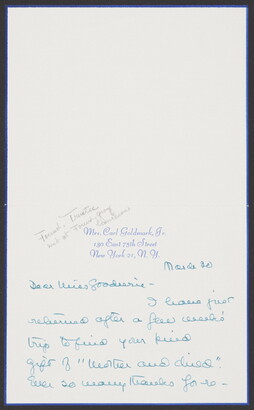 Former Trustee
Mrs. Carl Goldmark, Jr.
130 East 75th Street
New York 21, N.Y.
March 20
Dear Miss Goodwin -
I have just
returned after a few weeks
trip to find your kind
gift of "Mother and Child".
Ever so many thanks for re-